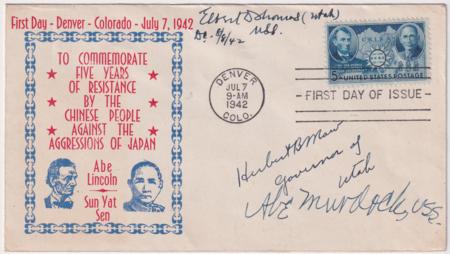 First Day - Denver - Colorado - July 7, 1942
TO COMMEMORATE
FIVE YEARS
OF RESISTANCE
BY THE
CHINESE PEOPLE
AGAINST THE
AGGRESSIONS OF JAPAN
Abe
Lincoln
Sun Yat
Sen
Elbert D Thomas (Utah)
USS.
DENVER
JUL 7
9-AM
1942
COLO.
CHINA
5¢ UNITED STATES POSTAGE
FIRST DAY OF ISSUE
Herbert B Maw
Governor of
Utah
Abe Murdock, USS.